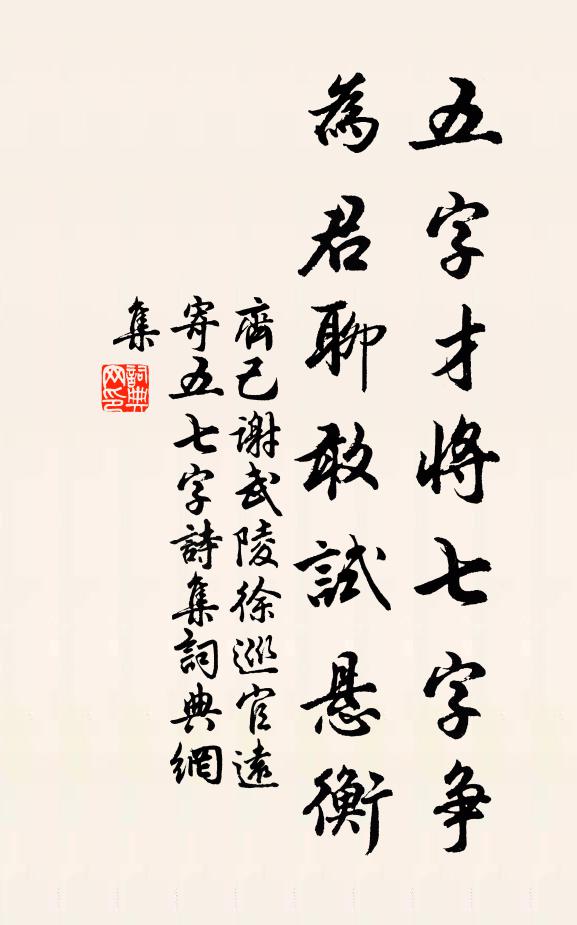 五字才將七字争
為君聊敢試懸衡
齊己謝武陵徐巡官遠
寄五七字詩集詞典網
集
詞典
网印